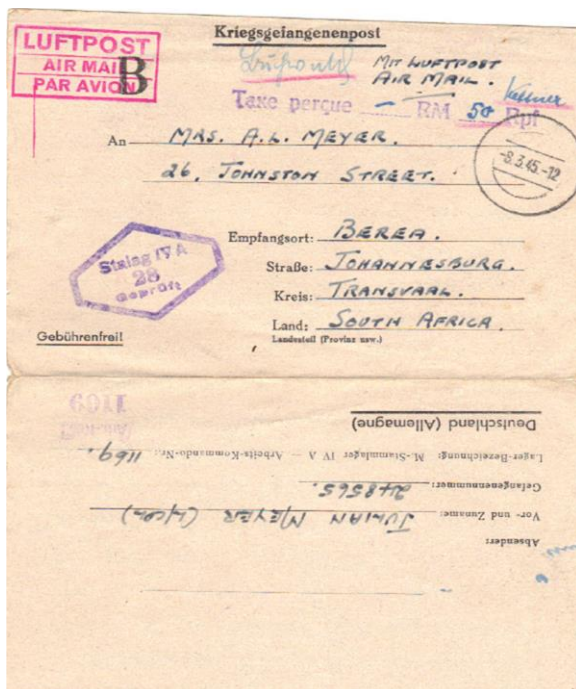 Kriegsgefangenenpost
LUFTPOST
AIR MAIL
PAR AVION
B
Luftpost
MIT LUFTPOST
AIR MAIL.
Taxe perçue — RM 50 Rpf
-8.3.45.-12
An MRS. A.L. MEYER.
26, JOHNSTON STREET.
Stalag IV A
28
Geprüft
Empfangsort: BEREA.
Straße: JOHANNESBURG.
Kreis: TRANSVAAL.
Land: SOUTH AFRICA.
Landesteil (Provinz usw.)
Gebührenfrei!
Absender:
Vor- und Zuname: JULIAN MEYER (L/CPL)
Gefangenennummer: 248565.
Lager-Bezeichnung: M.-Stammlager IV A — Arbeits-Kommando-Nr.: 1169.
Deutschland (Allemagne)
1169